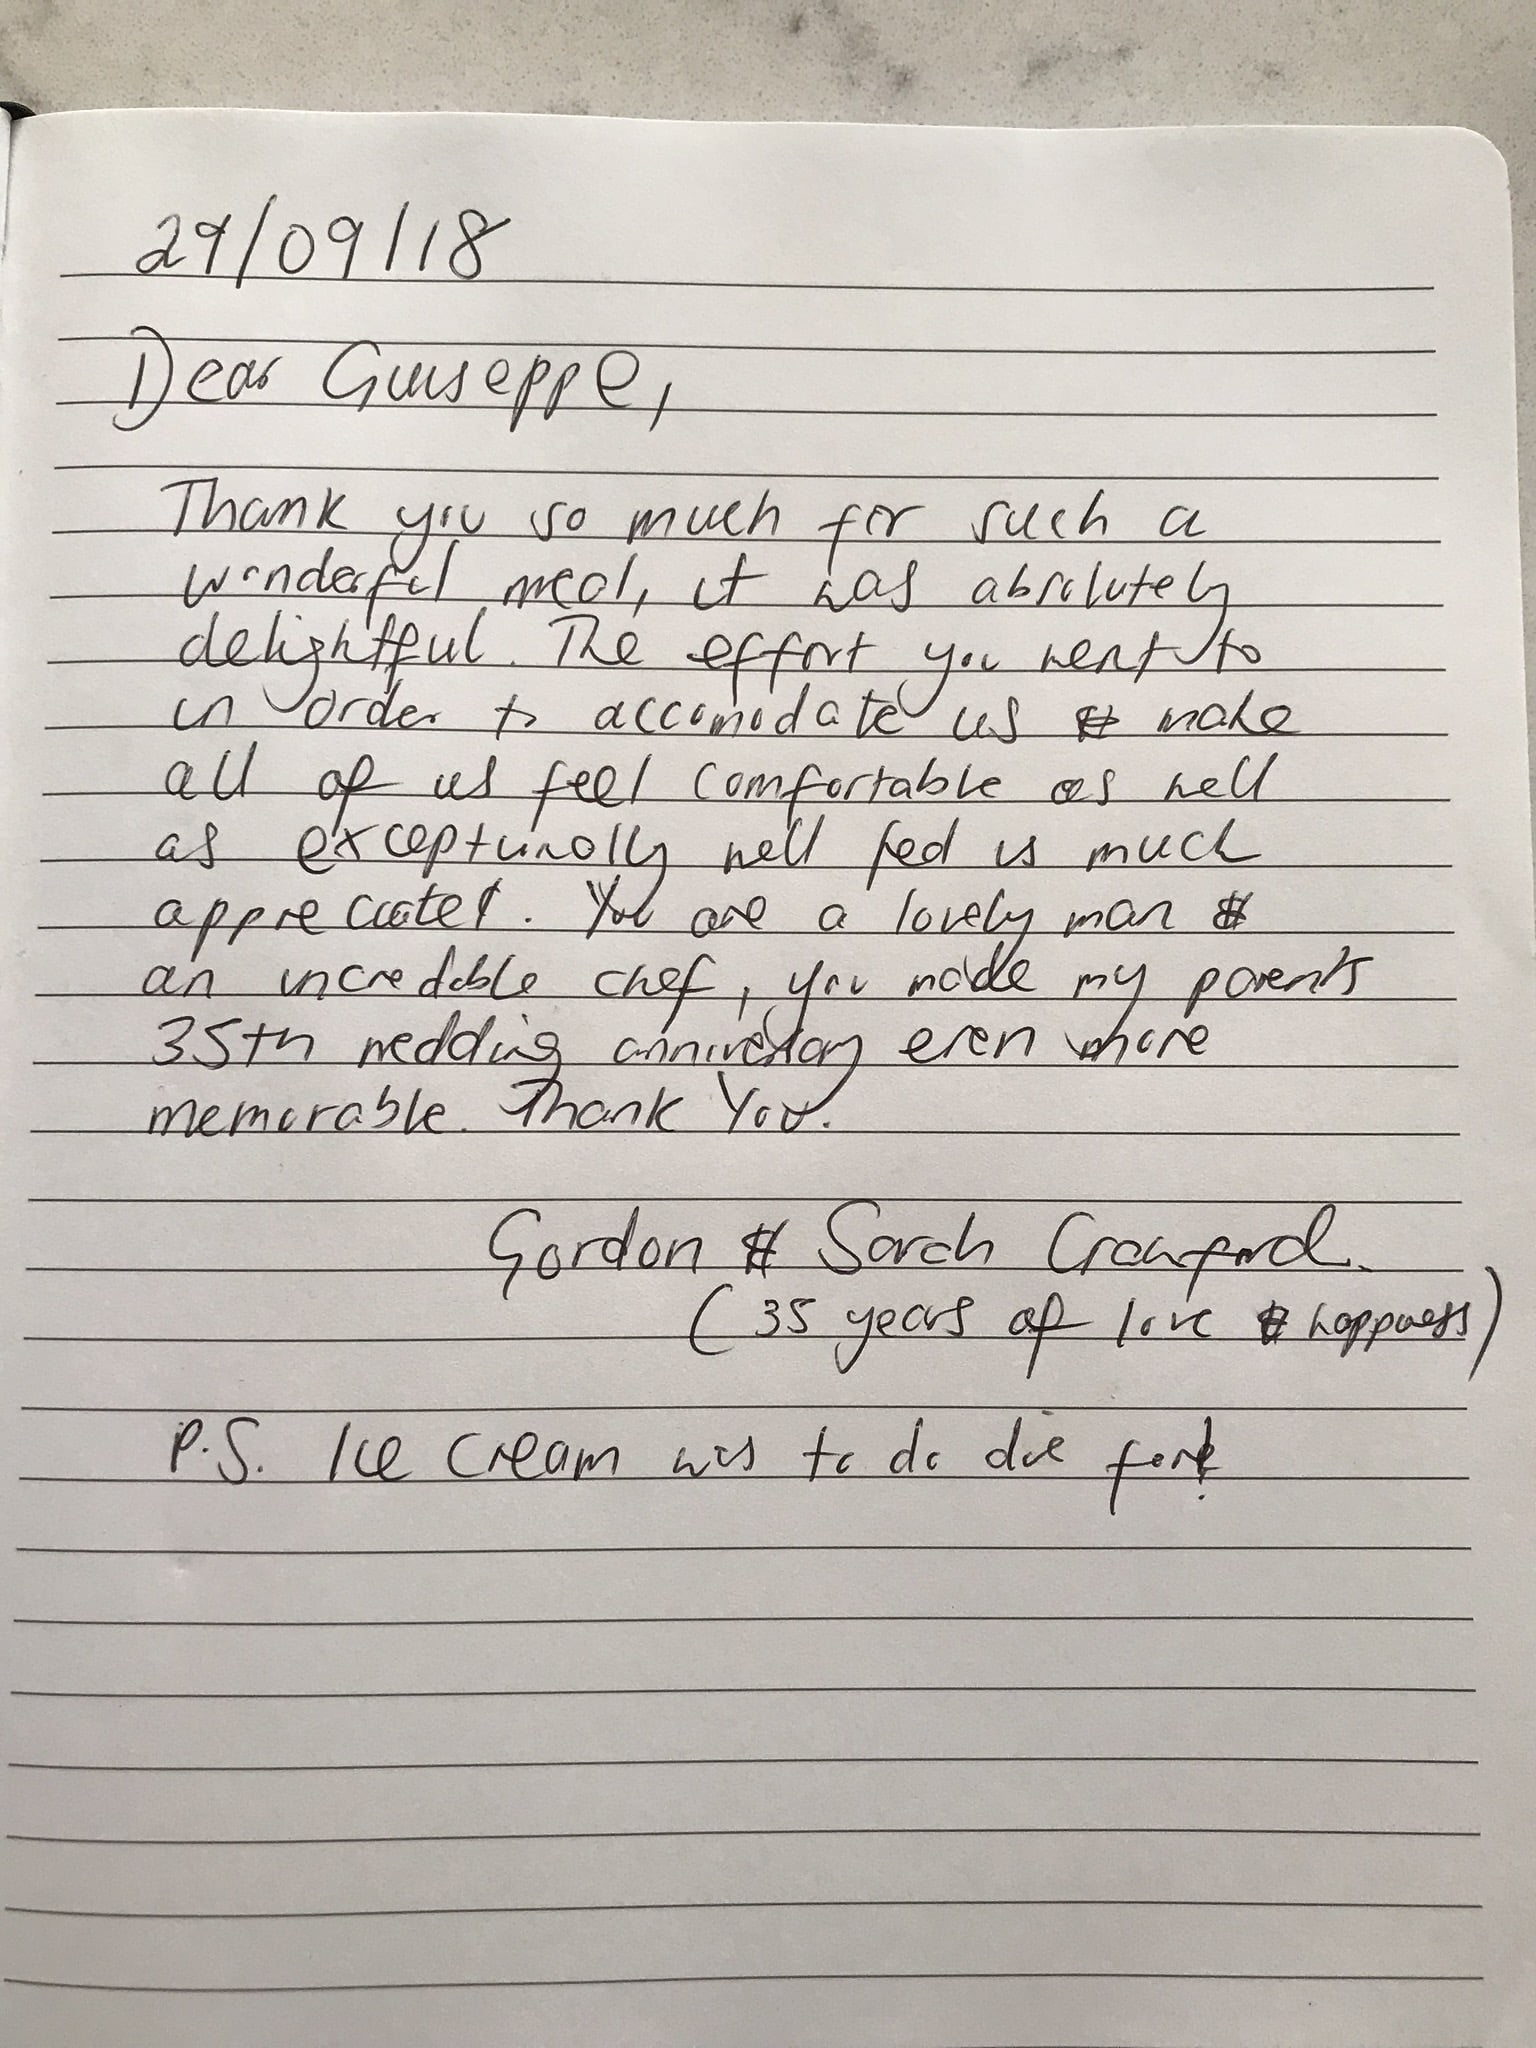 29/09/18
Dear Guiseppe,
Thank you so much for such a
wonderful meal, it was absolutely
delightful. The effort you went to
in order to accomodate us & make
all of us feel comfortable as well
as exceptionally well fed is much
appreciated. You are a lovely man &
an incredable chef, you made my parents
35th wedding anniversary even more
memorable. Thank You.
Gordon & Sarah Crawford.
(35 years of love & happness)
P.S. Ice cream was to do die for!